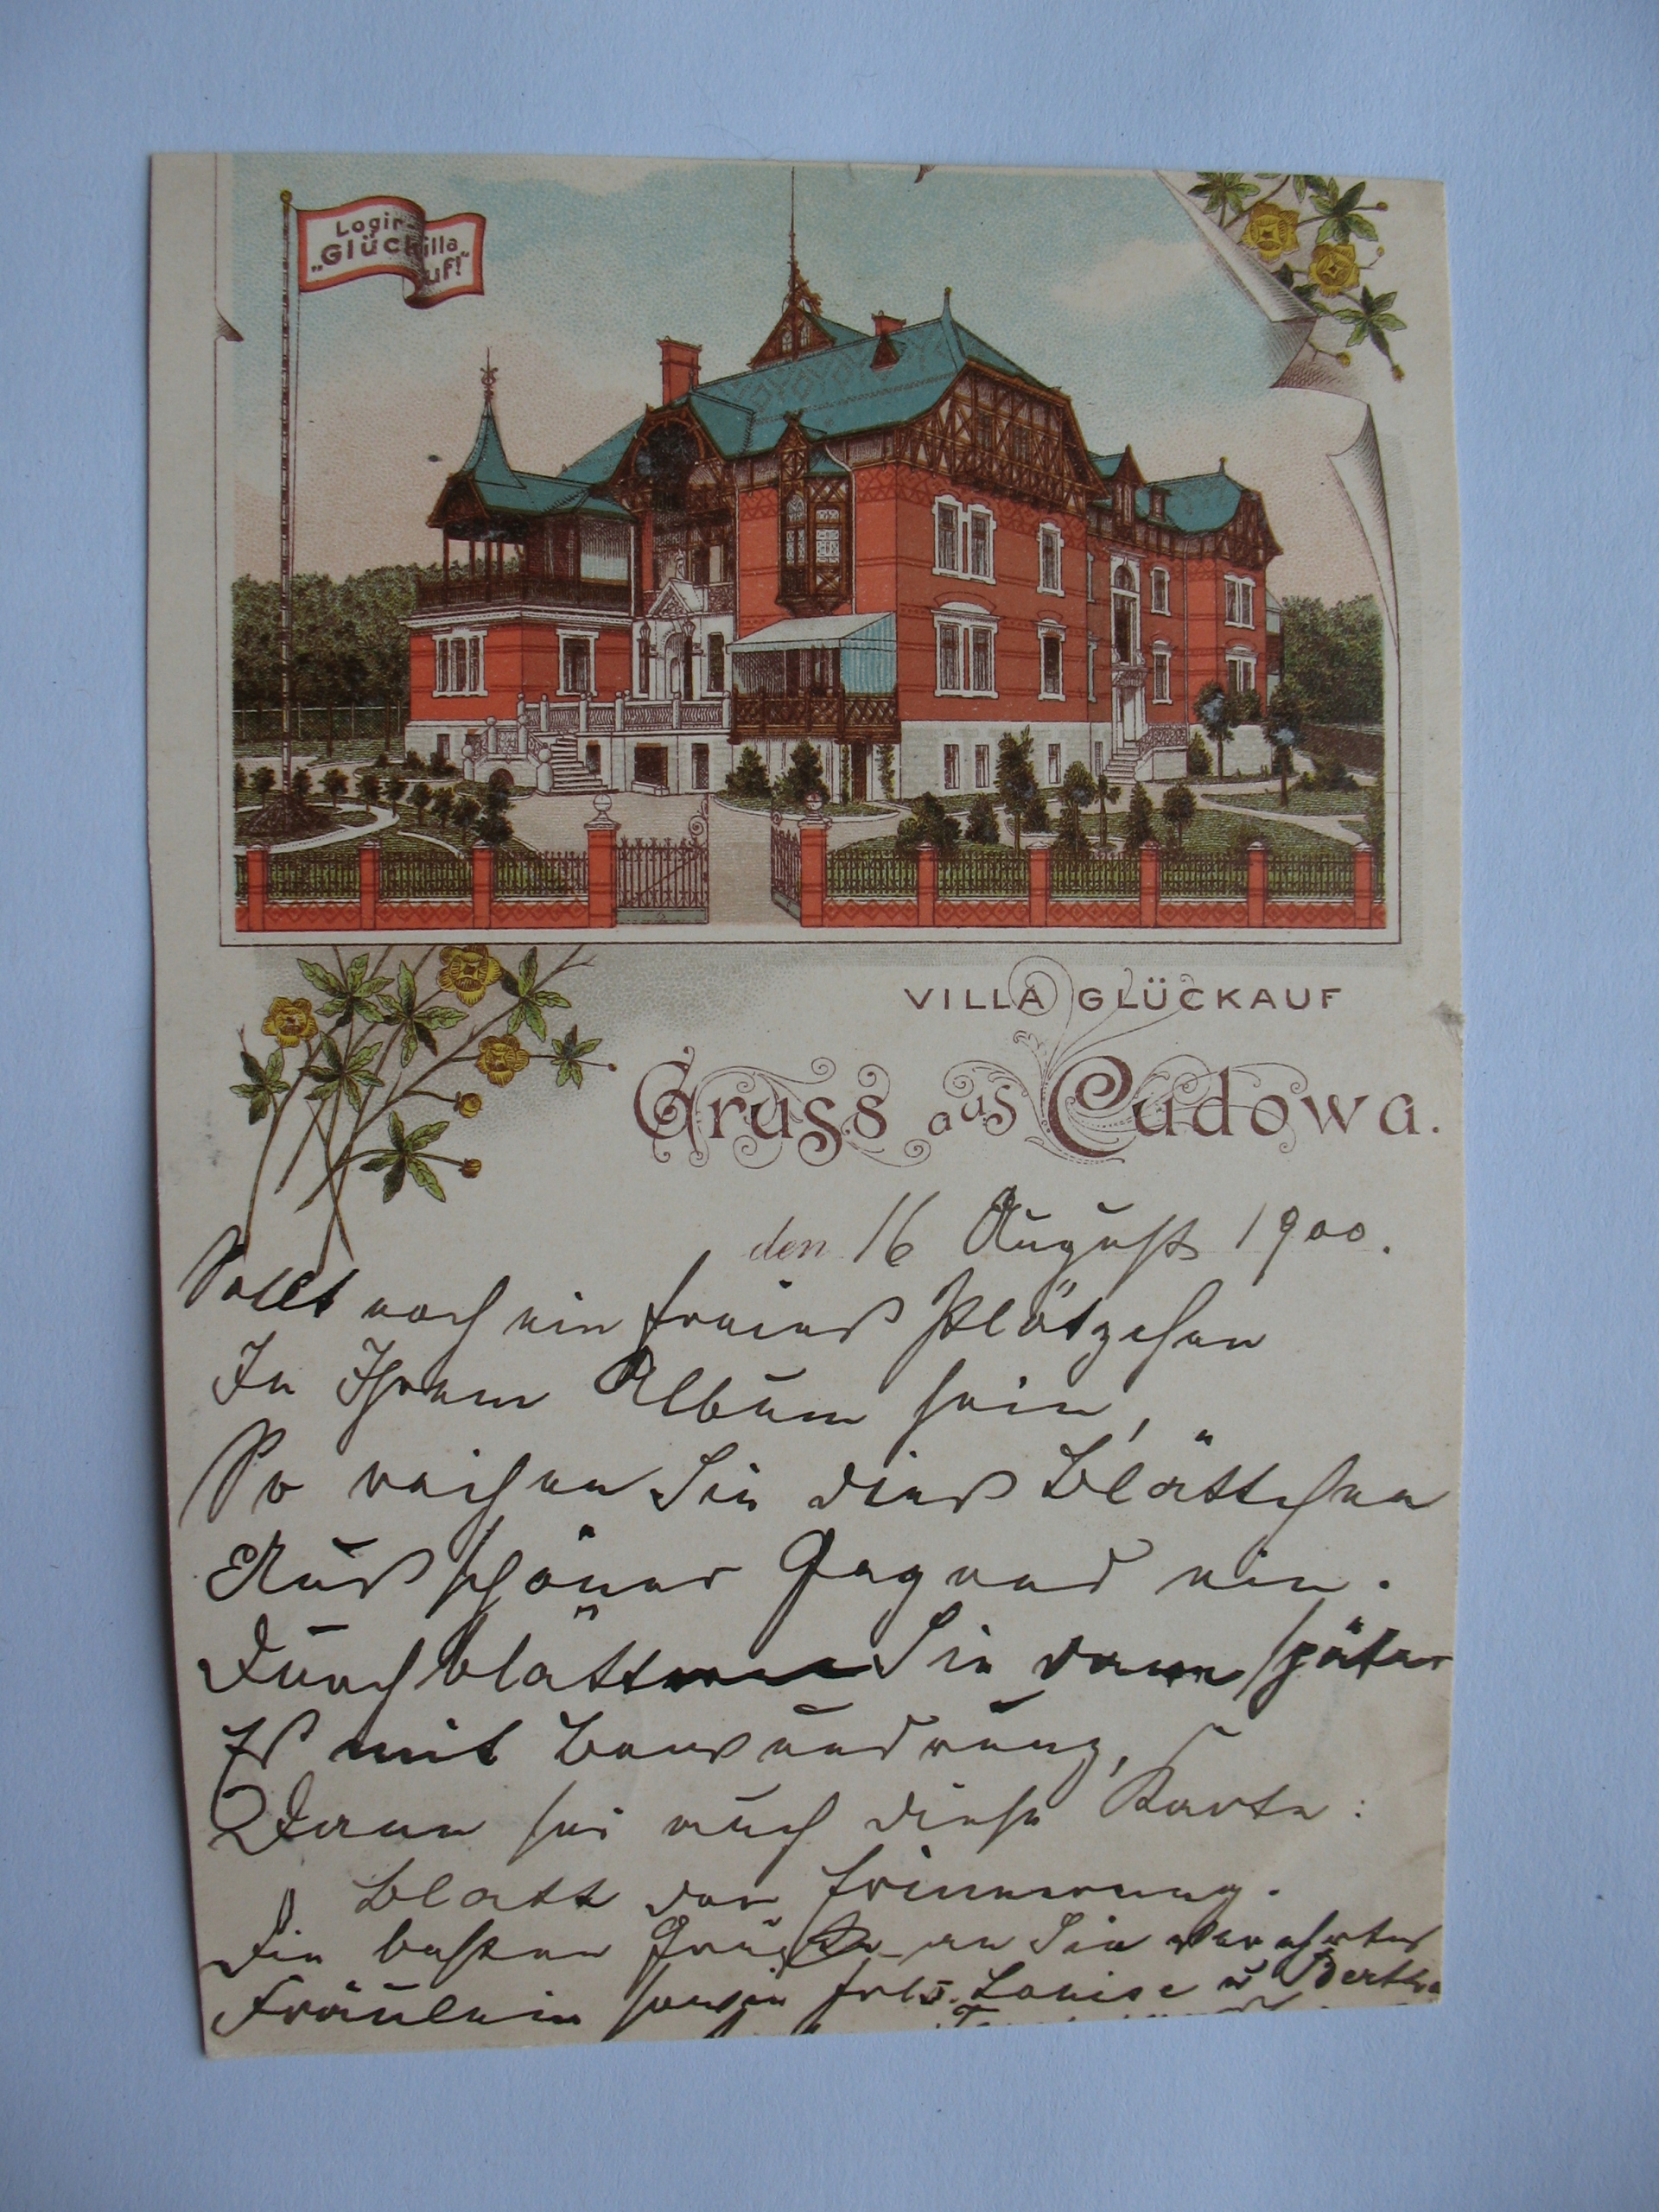 Logir-
illa
„Glück
uf!"
VILLA GLÜCKAUF
Gruss aus Cudowa.
den 16 August 1900.
Sollt noch ein freies Plätzchen
In Ihrem Album sein,
So reihen Sie dies Blättchen
Aus schöner Gegend ein.
Durchblättern Sie dann später
Es mit Bewundrung,
Dann sei auch diese Karte:
Blatt der Erinnerung.
Die besten Grüße an Sie verehrtes
Fräulein sowie Frls. Louise u Bertha